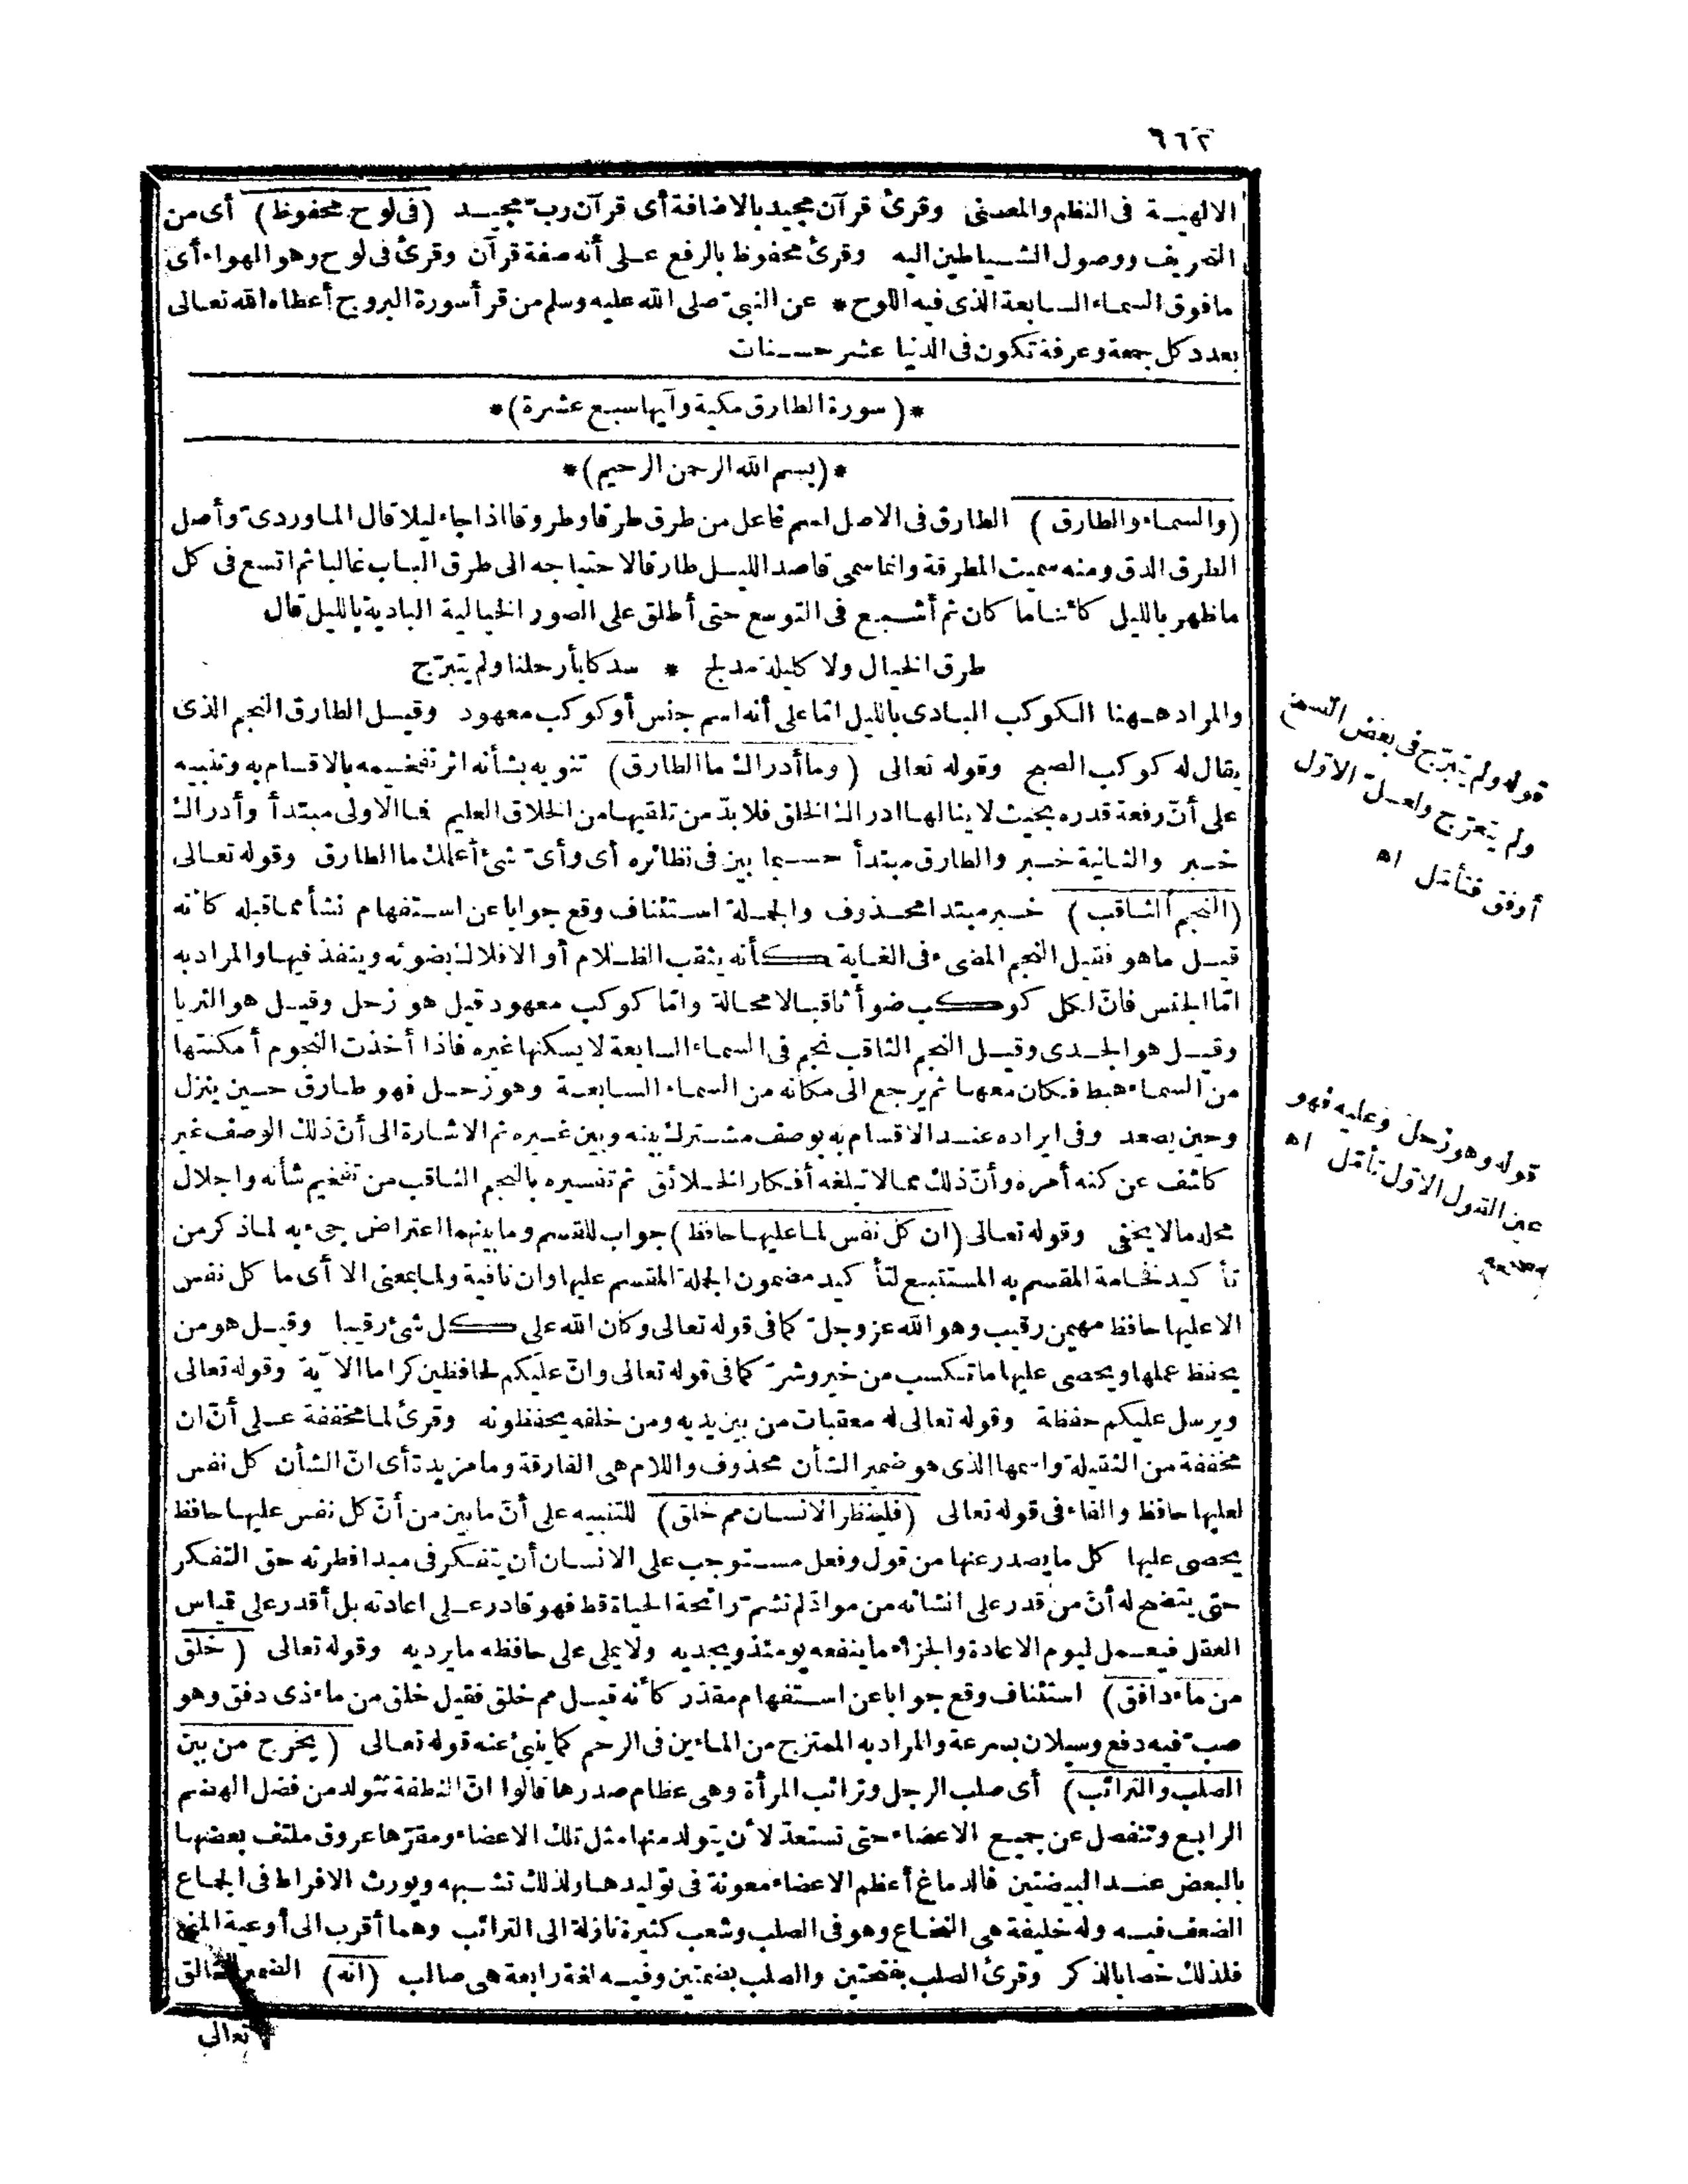 ٦٦٢
الالهية فى النظم والمعنى وقرئ قرآن مجيد بالاضافة أى قرآن رب مجيد (فى لوح محفوظ) أى من
التحريف ووصول الشياطين اليه وقرئ محفوظ بالرفع على أنه صفة قرآن وقرئ فى لوح وهو الهواء أى
مافوق السماء السابعة الذى فيه اللوح * عن النبىّ صلى الله عليه وسلم من قرأ سورة البروج أعطاه الله تعالى
بعدد كل جمعة وعرفة تكون فى الدنيا عشر حسنات
*(سورة الطارق مكية وآيها سبع عشرة)*
*(بسم الله الرحمن الرحيم)*
(والسماء والطارق) الطارق فى الاصل اسم فاعل من طرق طرقا وطروقا اذا جاء ليلا قال الماوردىّ وأصل
الطرق الدق ومنه سميت المطرقة وانما سمى قاصد الليل طارقا لاحتياجه الى طرق الباب غالبا ثم اتسع فى كل
ماظهر بالليل كائنا ما كان ثم أشبع فى التوسع حتى أطلق على الصور الخيالية البادية بالليل قال
طرق الخيال ولا كليلة مدلج * سدكا بأرحلنا ولم يتبرّج
والمراد ههنا الكوكب البادى بالليل امّا على أنه اسم جنس أو كوكب معهود وقيل الطارق النجم الذى
يقال له كوكب الصبح وقوله تعالى (وما أدراك ما الطارق) تنويه بشأنه اثر تفخيمه بالاقسام به وتنبيه
على أنّ رفعة قدره بحيث لا ينالها ادراك الخلق فلا بدّ من تلقيها من الخلاق العليم فما الاولى مبتدأ وأدراك
خبر والثانية خبر والطارق مبتدأ حسبما بين فى نظائره أى وأىّ شئ أعلمك ما الطارق وقوله تعالى
(النجم الثاقب) خبر مبتدا محذوف والجملة استئناف وقع جوابا عن استفهام نشأ مما قبله كانه
قيل ماهو فقيل النجم المضىء فى الغاية كأنه يثقب الظلام أو الافلاك بضوئه وينفذ فيها والمراد به
امّا الجنس فانّ لكل كوكب ضوأ ثاقبا لا محالة وامّا كوكب معهود قيل هو زحل وقيل هو الثريا
وقيل هو الجدى وقيل النجم الثاقب نجم فى السماء السابعة لا يسكنها غيره فاذا أخذت النجوم أمكنتها
من السماء هبط فكان معها ثم يرجع الى مكانه من السماء السابعة وهو زحل فهو طارق حين ينزل
وحين يصعد وفى ايراده عند الاقسام به بوصف مشترك بينه وبين غيره ثم الاشارة الى أنّ ذلك الوصف غير
كاشف عن كنه أمره وأنّ ذلك مما لا تبلغه أفكار الخلائق ثم تفسيره بالنجم الثاقب من تفخيم شأنه واجلال
محله مالا يخفى وقوله تعالى (ان كل نفس لما عليها حافظ) جواب للقسم وما بينهما اعتراض جىء به لما ذكر من
تأكيد فخامة المقسم به المستتبع لتأكيد مضمون الجملة المقسم عليها وان نافية ولما بمعنى الا أى ما كل نفس
الا عليها حافظ مهيمن رقيب وهو الله عز وجلّ كما فى قوله تعالى وكان الله على كل شئ رقيبا وقيل هو من
يحفظ عملها ويحصى عليها ما تكسب من خير وشرّ كما فى قوله تعالى وانّ عليكم لحافظين كراما الآية وقوله تعالى
ويرسل عليكم حفظة وقوله تعالى له معقبات من بين يديه ومن خلفه يحفظونه وقرئ لما مخففة على أنّ ان
مخففة من الثقيلة واسمها الذى هو ضمير الشأن محذوف واللام هى الفارقة وما مزيدة أى انّ الشأن كل نفس
لعليها حافظ والفاء فى قوله تعالى (فلينظر الانسان مم خلق) للتنبيه على أنّ ما بين من أنّ كل نفس عليها حافظ
يحصى عليها كل ما يصدر عنها من قول وفعل مستوجب على الانسان أن يتفكر فى مبدا فطرته حق التفكر
حتى يتضح له أنّ من قدر على انشائه من موادّ لم تشمّ رائحة الحياة قط فهو قادر على اعادته بل أقدر على قياس
العقل فيعمل ليوم الاعادة والجزاء ما ينفعه يومئذ ويجديه ولا يملى على حافظه ما يرديه وقوله تعالى (خلق
من ماء دافق) استئناف وقع جوابا عن استفهام مقدّر كأنه قيل مم خلق فقيل خلق من ماء ذى دفق وهو
صبّ فيه دفع وسيلان بسرعة والمراد به الممتزج من الماءين فى الرحم كما ينبئ عنه قوله تعالى (يخرج من بين
الصلب والترائب) أى صلب الرجل وترائب المرأة وهى عظام صدرها قالوا انّ النطفة تتولد من فضل الهضم
الرابع وتنفصل عن جميع الاعضاء حتى تستعدّ لأن يتولد منها مثل تلك الاعضاء ومقرّها عروق ملتف بعضها
بالبعض عند البيضتين فالدماغ أعظم الاعضاء معونة فى توليدها ولذلك تشبهه ويورث الافراط فى الجماع
الضعف فيه وله خليفة هى النخاع وهو فى الصلب وشعب كثيرة نازلة الى الترائب وهما أقرب الى أوعية المنى
فلذلك خصا بالذكر وقرئ الصلب بفتحتين والصلب بضمتين وفيه لغة رابعة هى صالب (انه) الضمير للخالق
تعالى
قوله ولم يتبرّج فى بعض النسخ
ولم يتعرّج ولعلّ الاوّل
أوفق فتأمّل اه
قوله وهو زحل وعليه فهو
عين القول الاوّل تأمّل اه
مصححه